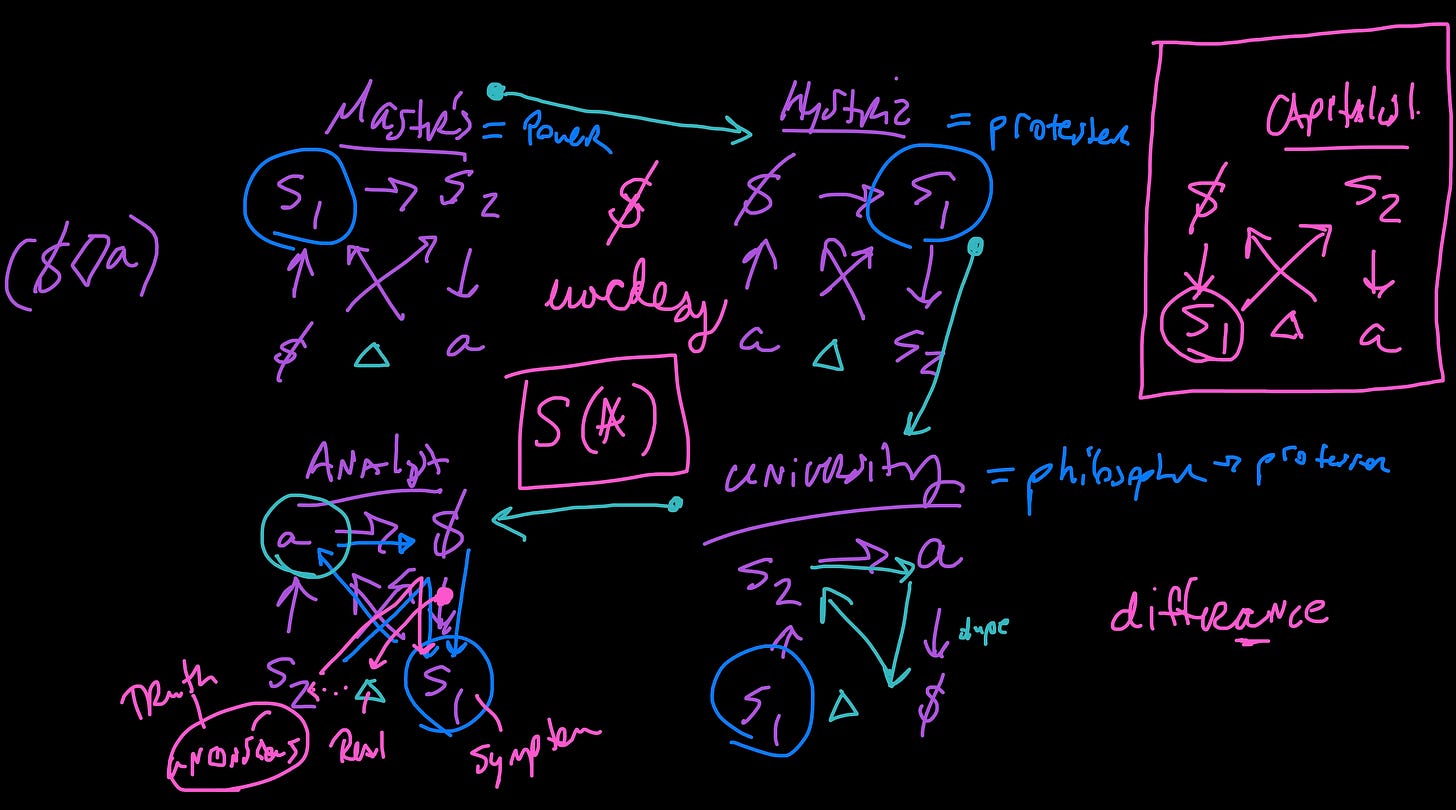 ($◊a)
Master's = Power
S1 → S2
$ △ a
$
Hysteric = protester
$ → S1
a △ S2
Capitalist
$ S2
S1 △ a
S(Ⱥ)
Analyst
a → $
S2 △ S1
Truth
Real
Symptom
university = philosopher → professor
S2 → a
S1 △ $
differance